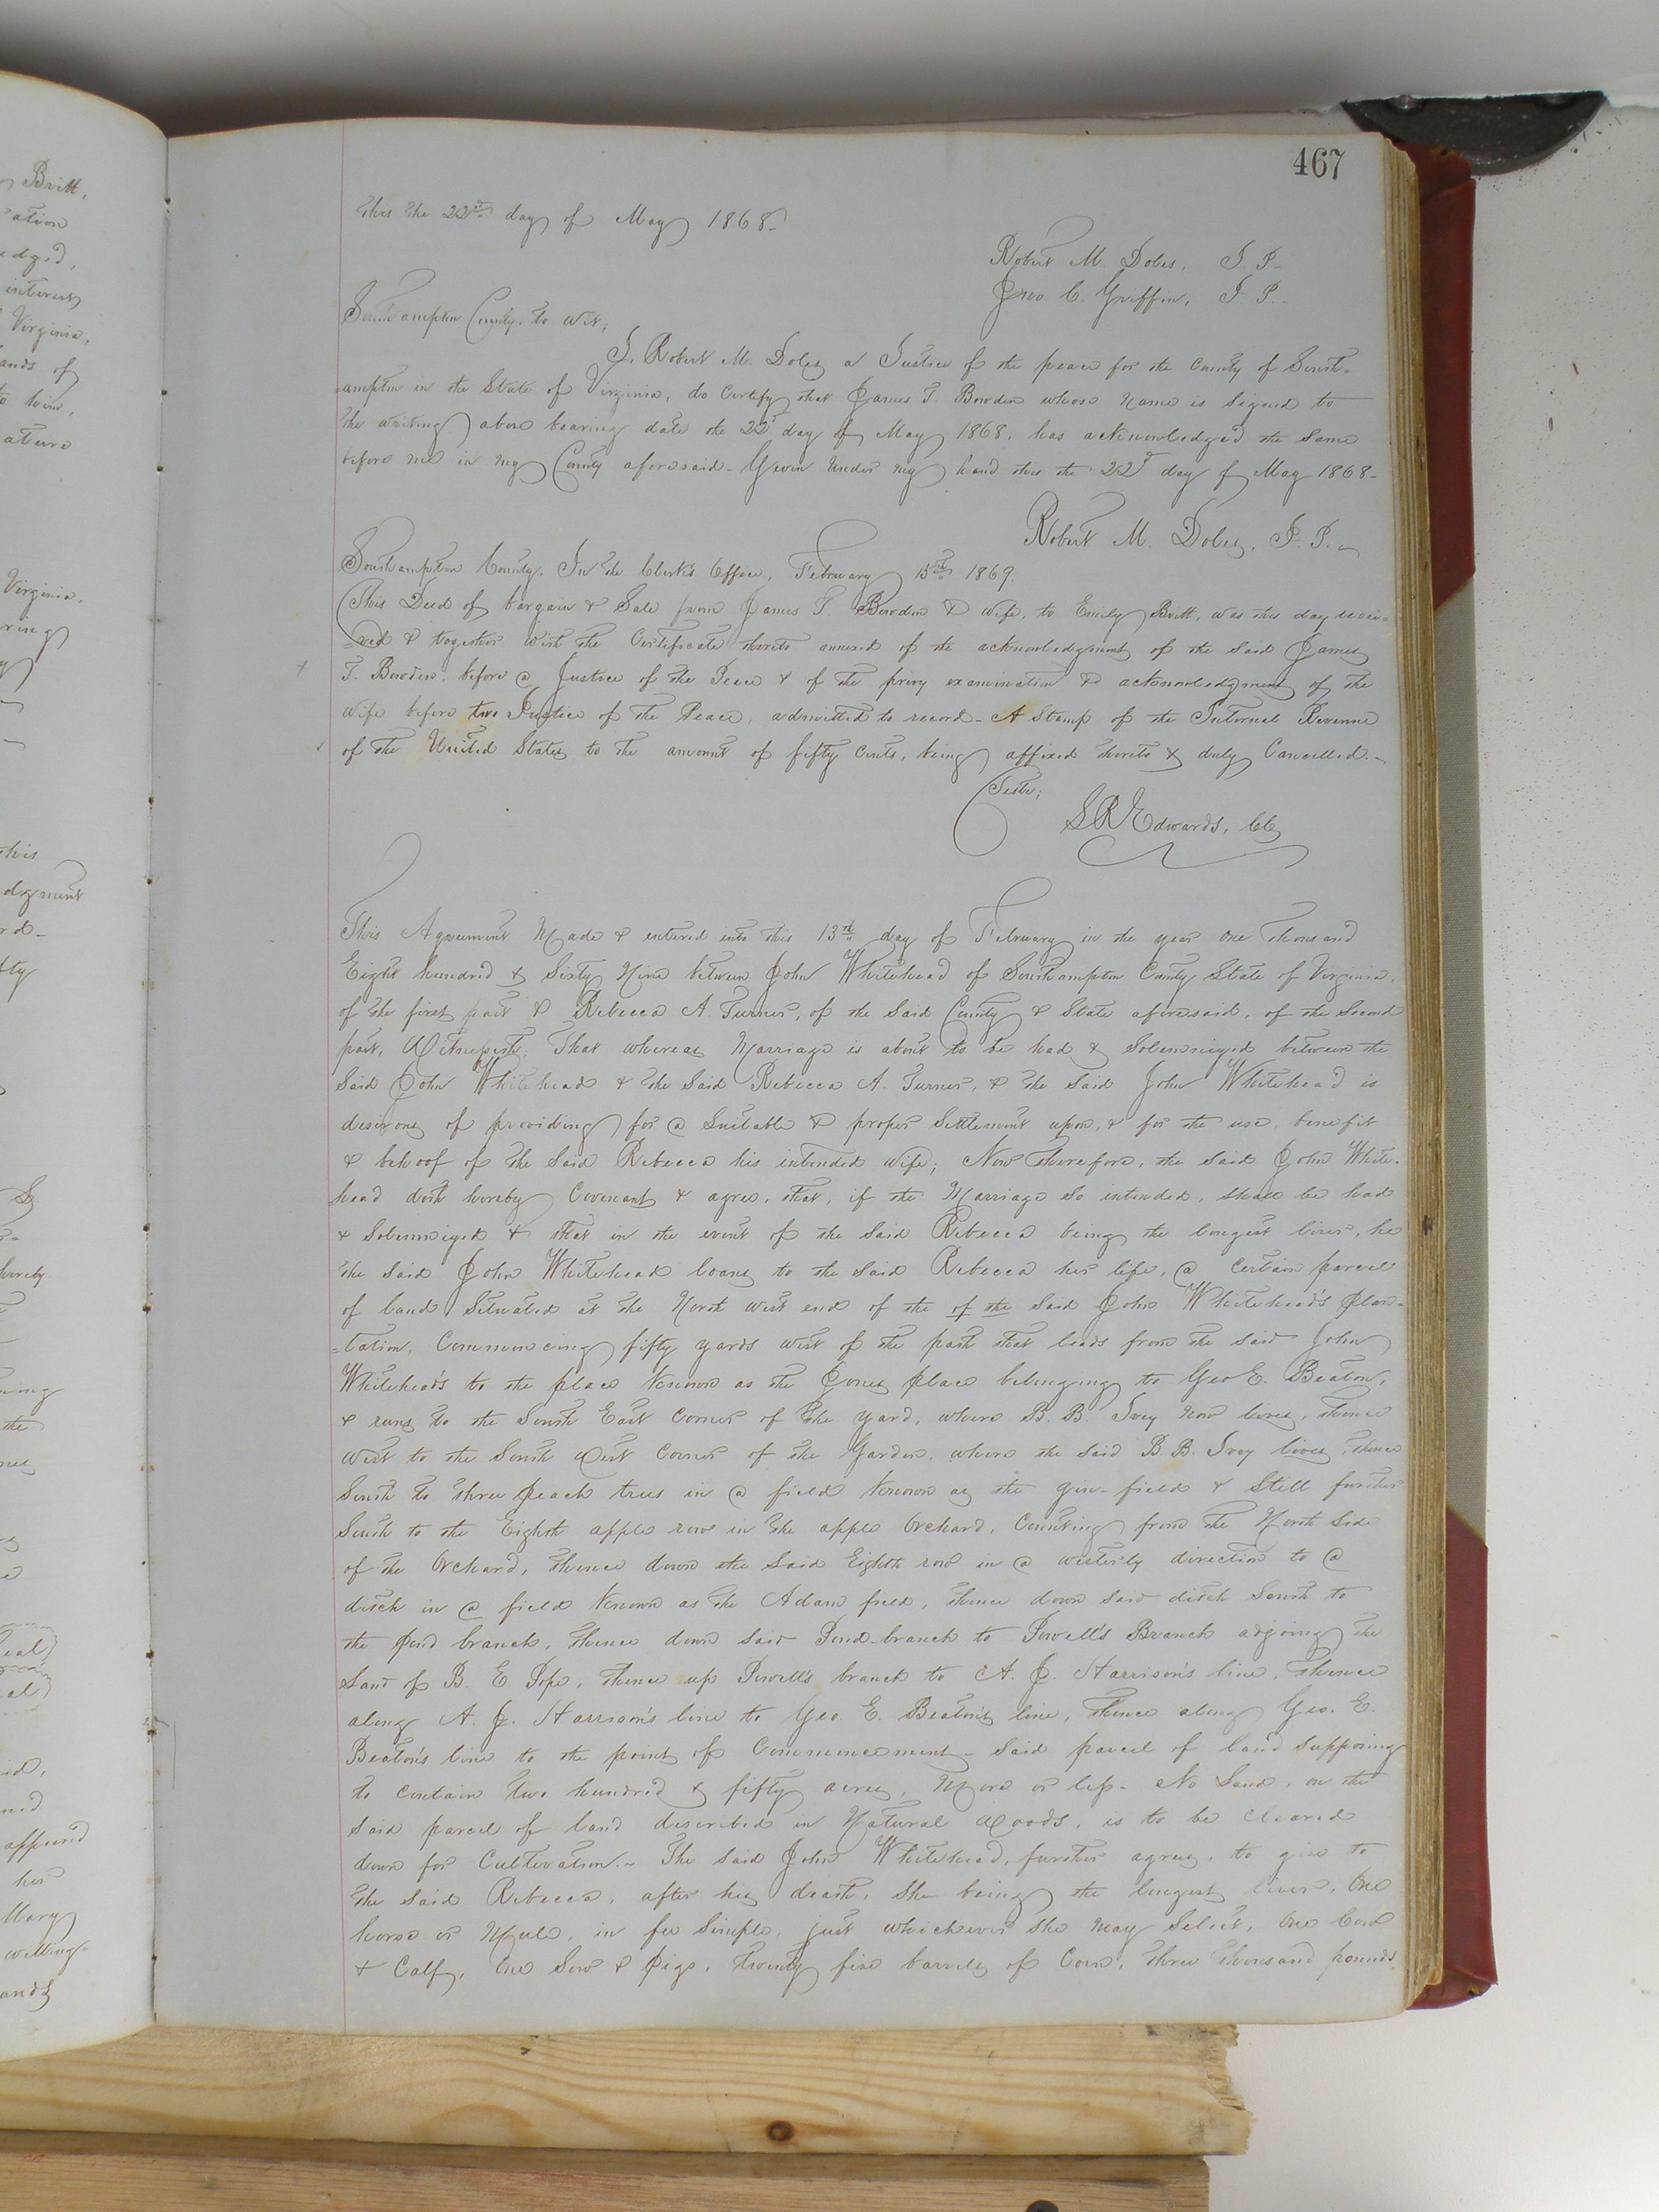 467
this the 22nd day of May 1868.
Robert M. Doles, J P.
Jno. C. Griffin, J. P.
Southampton County, to wit;
I, Robert M. Doles a Justice of the peace for the County of South-
=ampton in the State of Virginia, do Certify that James T. Bowden whose Name is Signed to
the writing above bearing date the 22d day of May 1868, has acknowledged the Same
before me in my County aforesaid - Given Under my hand this the 22d day of May 1868-
Robert M. Doles, J. P.
Southampton County, In the Clerk's Office, February 15th 1869.
This Deed of bargain & Sale from James T. Bowden & wife, to Emily Britt, was this day recei-
=ved & together with the Certificate thereto annexed of the acknowledgment of the said James
T. Bowden, before a Justice of the Peace & of the privy examination & acknowledgment of the
wife before two Justices of the Peace, admitted to record - A Stamp of the Internal Revenue
of the United States to the amount of fifty Cents, being affixed thereto & duly Cancelled.-
Teste;
L R Edwards, Clk
This Agreement Made & entered into this 13th day of February in the year One Thousand
Eight hundred & Sixty Nine between John Whitehead of Southampton County State of Virginia,
of the first part & Rebecca A. Turner, of the Said County & State aforesaid, of the Second
part, Witnesseth; That whereas Marriage is about to be had & Solemnized between the
Said John Whitehead & the Said Rebecca A. Turner, & the Said John Whitehead is
desirous of providing for a Suitable & proper Settlement upon, & for the use, benefit
& behoof of the Said Rebecca his intended wife; Now Therefore, the said John White-
head doth hereby Covenant & agree, that, if the Marriage So intended, shall be had
& Solemnized & that in the event of the Said Rebecca being the longest liver, he
the Said John Whitehead loans to the Said Rebecca her life, a Certain parcel
of land Situated at the North west end of the of the Said John Whitehead's plan-
=tation, Commencing fifty yards west of the path that leads from the said John
Whitehead's to the place Known as the Jones place belonging to Geo E. Beaton,
& runs to the South East Corner of the yard, where B. B. Ivey Now lives, thence
west to the South West Corner of the Garden, where the Said B B. Ivey lives, thence
South to three peach trees in a field Known as the gin-field & Still further
South to the Eighth apple row in the apple Orchard, Counting from the North Side
of the Orchard, thence down the Said Eighth row in a westerly direction to a
ditch in a field Known as the Adam field, thence down Said ditch South to
the pond branch, thence down Said Pond-branch to Powell's Branch adjoing the
Land of B. E Pope, thence up Powell's branch to A. J. Harrison's line, thence
along A. J. Harrison's line to Geo. E. Beaton's line, Thence along Geo. E.
Beaton's line to the point of Commencement - Said parcel of land Supposing
to contain two hundred & fifty acres, More or less - No Land, on the
said parcel of land described in Natural Woods, is to be cleared
down for Cultivation.- The Said John Whitehead, further agrees, to give to
the Said Rebecca, after his death, She being the longest liver, One
horse or Mule, in fee Simple, just whichever She may Select, One Cow
& Calf, One Sow & Pigs, twenty five barrels of Corn, three thousand pounds